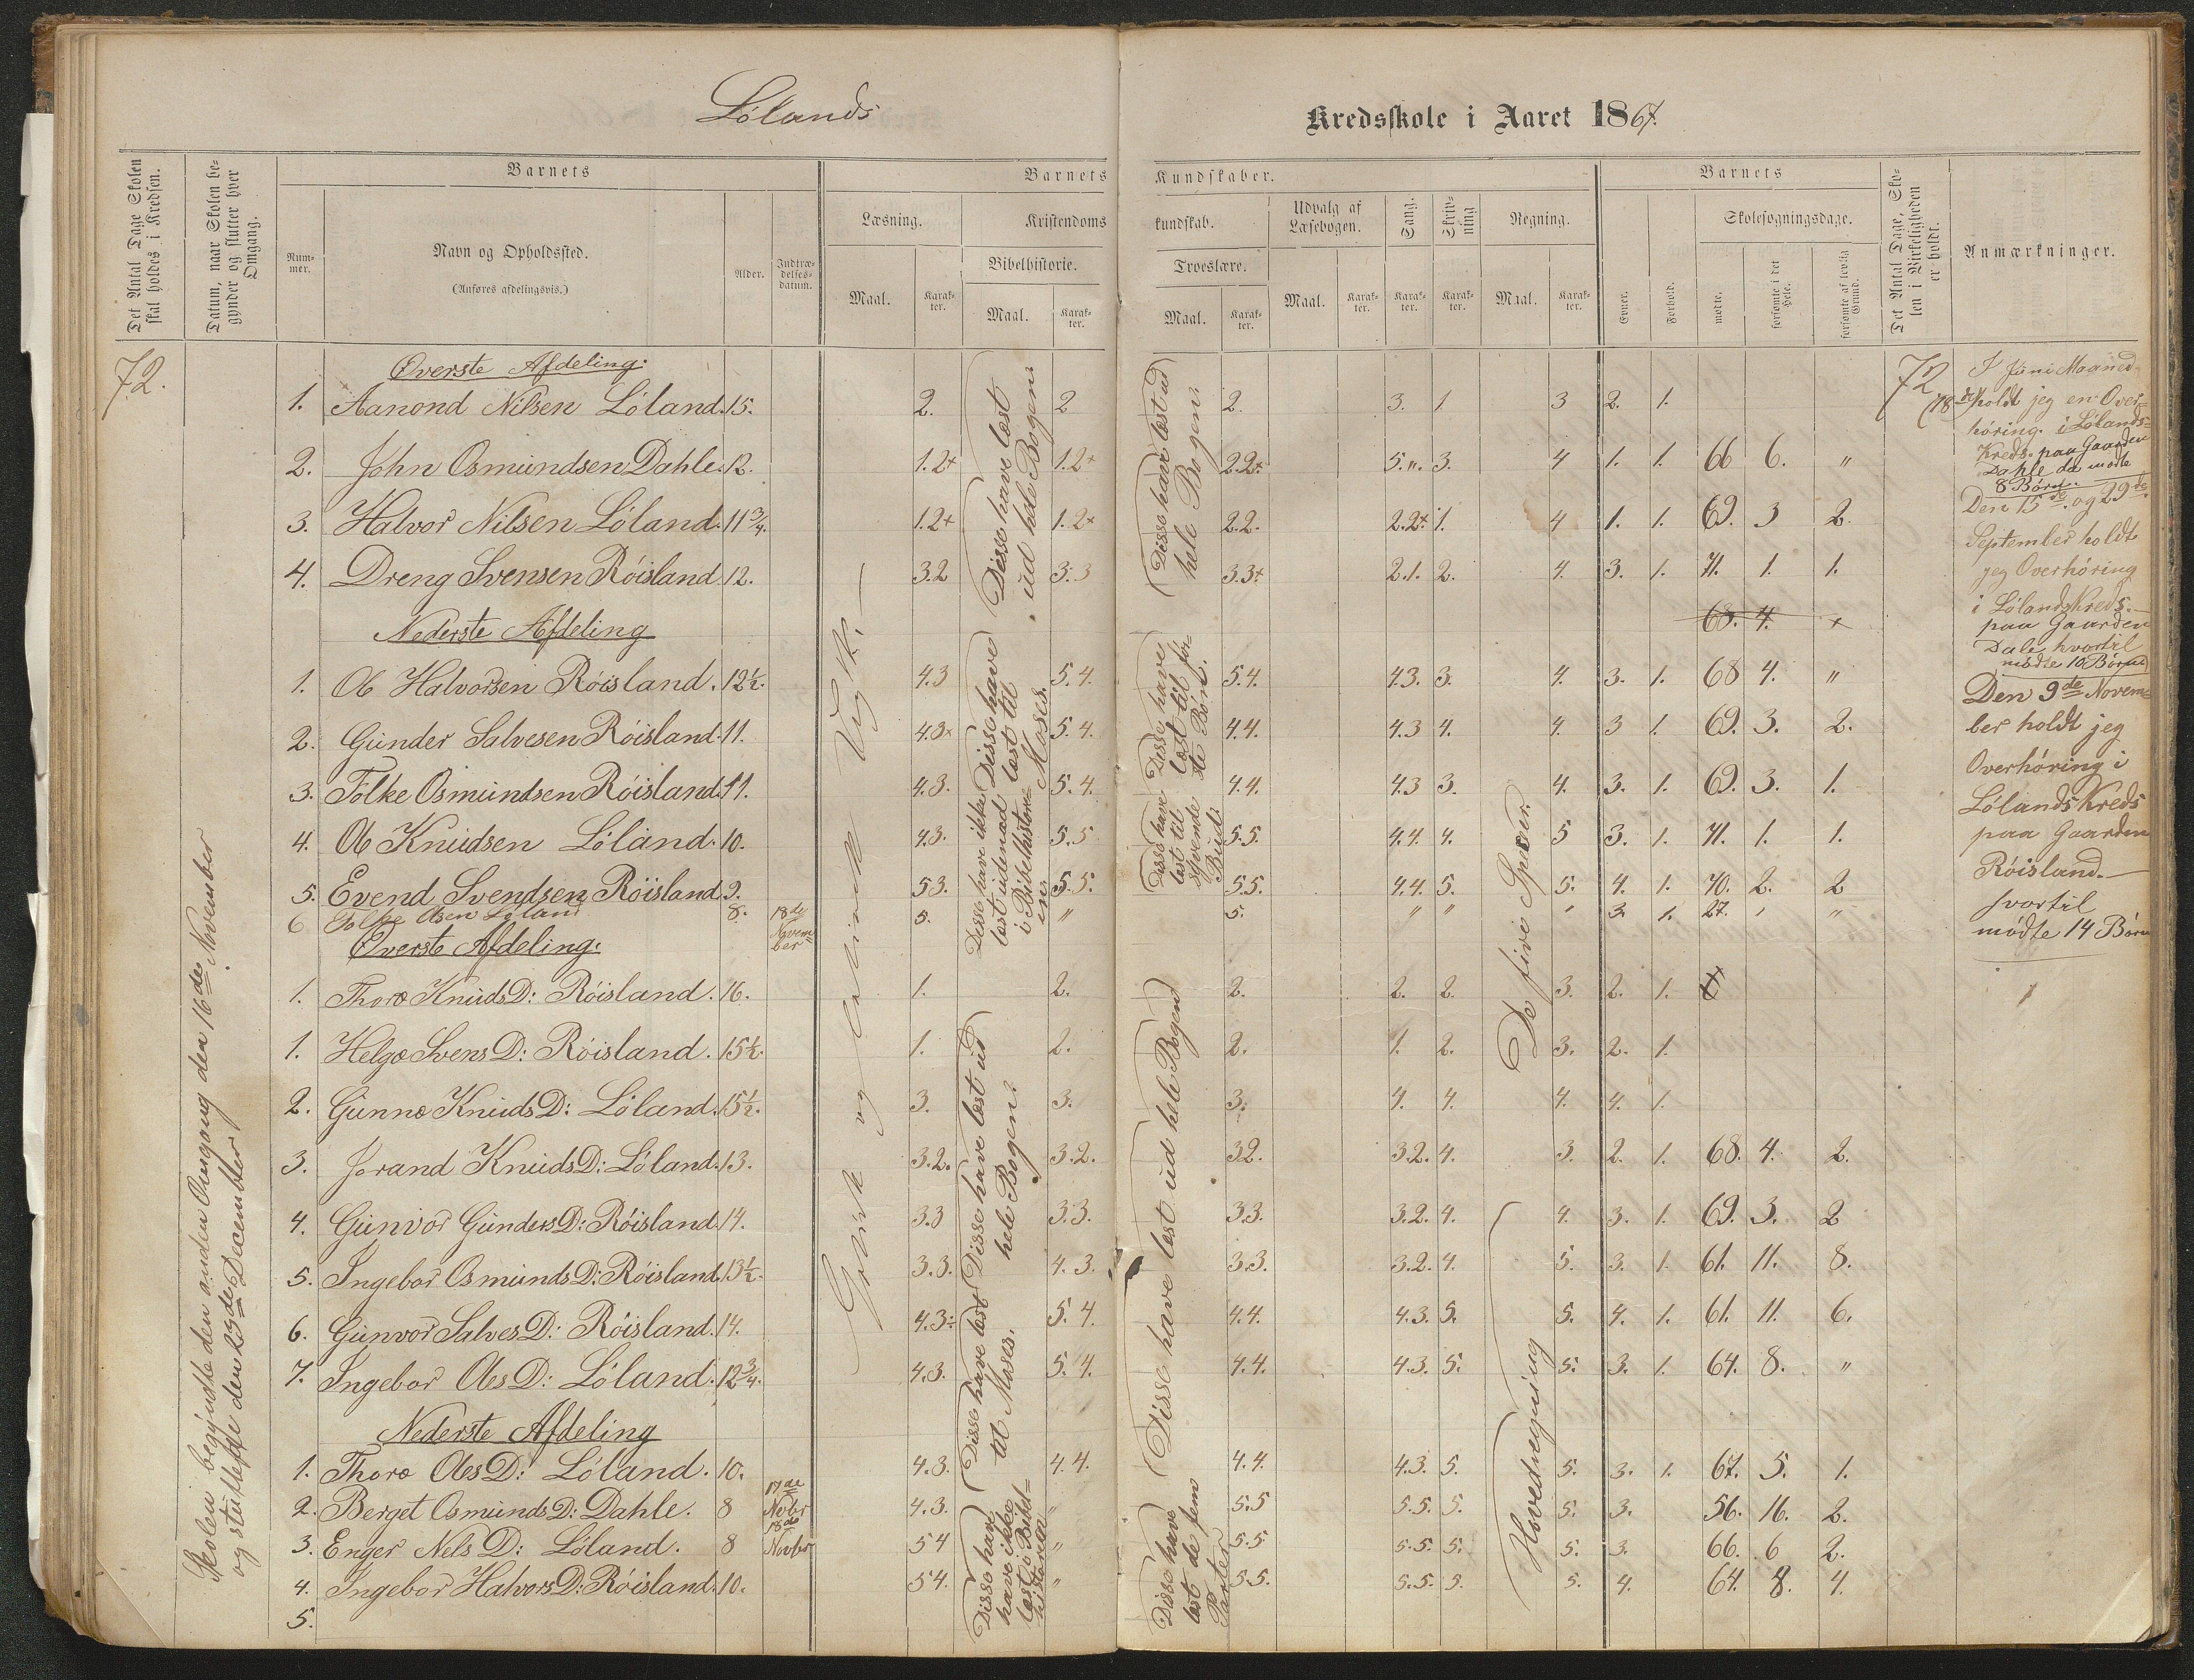 Lölands
Kredsskole i Aaret 1867.
Det Antal Dage Skolen skal holdes i Kredsen.
Datum, naar Skolen begynder og slutter hver Omgang.
Barnets
Barnets Kundskaber.
Barnets
Det Antal Dage, Skolen i Virkeligheden er holdt.
Anmærkninger.
Nummer.
Navn og Opholdssted.
(Anføres afdelingsvis.)
Alder.
Indtrædelsesdatum.
Læsning.
Kristendomskundskab.
Udvalg af Læsebogen.
Sang.
Skrivning
Regning.
Skolesøgningsdage.
Bibelhistorie.
Troeslære.
Maal.
Karakter.
Maal.
Karakter.
Maal.
Karakter.
Maal.
Karakter.
Karakter.
Karakter.
Maal.
Karakter.
Evner.
Forhold.
mødte.
forsømte i det Hele.
forsømte af lovlig Grund.
72.
Overste Afdeling:
1. Aanond Nilsen Löland. 15. 2. 2 2. 3. 1 3 2. 1.
2. John Osmundsen Dahle. 12. 1.2+ 1.2+ 2.2+ 5.". 3. 4 1. 1. 66 6. "
3. Halvor Nilsen Löland. 11 3/4. 1.2+ 1.2+ 2.2. 2.2+ 1. 4 1. 1. 69. 3 2.
4. Dreng Svensen Röisland 12. 3.2 3.3 3.3+ 2.1. 2. 4. 3. 1. 71. 1. 1.
Nederste Afdeling
68. 4.
1. Ole Halvorsen Röisland. 12 1/2. 4.3 5.4. 5.4. 4.3. 3. 4. 3. 1. 68 4. "
2. Gunder Salvesen Röisland. 11. 4.3+ 5.4. 4.4. 4.3 4. 4. 3 1. 69. 3. 2.
3. Tolke Osmundsen Röisland. 11. 4.3. 5.4. 4.4. 4.3 3. 4. 3. 1. 69. 3. 1.
4. Ole Knudsen Löland. 10. 4.3. 5.5 5.5. 4.4. 4. 5 3. 1. 71. 1. 1.
5. Evend Svendsen Röisland. 9. 5.3. 5.5. 5.5. 4.4. 5. 5. 4. 1. 70. 2. 2
6 Tolke Olsen Löland 8. 18de November 5. " 5. " " " 3. 1. 27. " "
Överste Afdeling:
1. Thore Knuds D: Röisland. 16. 1. 2. 2. 2. 2. 3. 2. 1.
1. Helge Svens D: Röisland. 15 1/2. 1. 2. 2. 1. 2. 3. 2. 1.
2. Gunne Knuds D: Löland. 15 1/2. 3. 3. 3. 4. 4. 4. 4. 1.
3. Jorand Knuds D: Löland. 13. 3.2. 3.2. 3.2. 3.2. 4. 3. 2. 1. 68. 4. 2.
4. Gunvor Gunders D: Röisland. 14. 3.3 3.3. 3.3. 3.2. 4. 4. 3. 1. 69. 3. 2
5. Ingebor Osmunds D: Röisland 13 1/2. 3.3. 4.3. 3.3. 3.2. 4. 5. 3. 1. 61. 11. 8.
6. Gunvor Salves D: Röisland. 14. 4.3: 5.4. 4.4. 4.3. 5. 5. 4. 1. 61. 11. 6.
7. Ingebor Oles D: Löland. 12 3/4. 4.3. 5.4. 4.4. 4.3. 5. 5. 3. 1. 64. 8. "
Nederste Afdeling
1. Thore Oles D: Löland. 10. 4.3. 4.4. 4.4. 4.3. 5. 5. 3. 1. 67. 5. 1.
2. Berget Osmunds D: Dahle. 8 17de Novbr 4.3. " 5.5 5.5. 5. 5. 3. 56. 16. 2.
3. Enger Nels D: Löland. 8 18de Novbr 5 4 " 5.5 5.5. 5. 5. 3. 66. 6 2.
4. Ingebor Halvors D: Röisland. 10. 5 4. " 5.5. 5.5. 5. 5. 4. 64. 8. 4.
5.
Skolen begyndte den anden Omgang den 16de November
og sluttede den 23de December
Disse have læst
ud hele Bogen.
Disse have
læst til
Moses.
Disse have ikke
læst udenad
i Bibelhistorien
Disse have læst ud
hele Bogen.
Disse have læst
til Moses.
Disse have
have ikke
læst i Bibelhistorien
Disse have læst ud
hele Bogen.
Disse have
læst til förste Bön.
Disse have
læst til
syvende
Bud.
Disse have læst ud hele Bogen
Disse have
læst de fem
Parter
De fire Specier.
Hovedregning
72
(18
I Juni Maaned
holdt jeg en Overhöring i Lölands
Kreds paa Gaarden
Dahle da mödte
8 Börn.
Den 15de og 29de
September holdt
jeg Overhöring
i Lölands Kreds.
paa Gaarden
Dale, hvortil
mödte 10 Börn
Den 9de November holdt jeg
Overhöring i
Lölands Kreds
paa Gaarden
Röisland.
hvortil
mödte 14 Börn